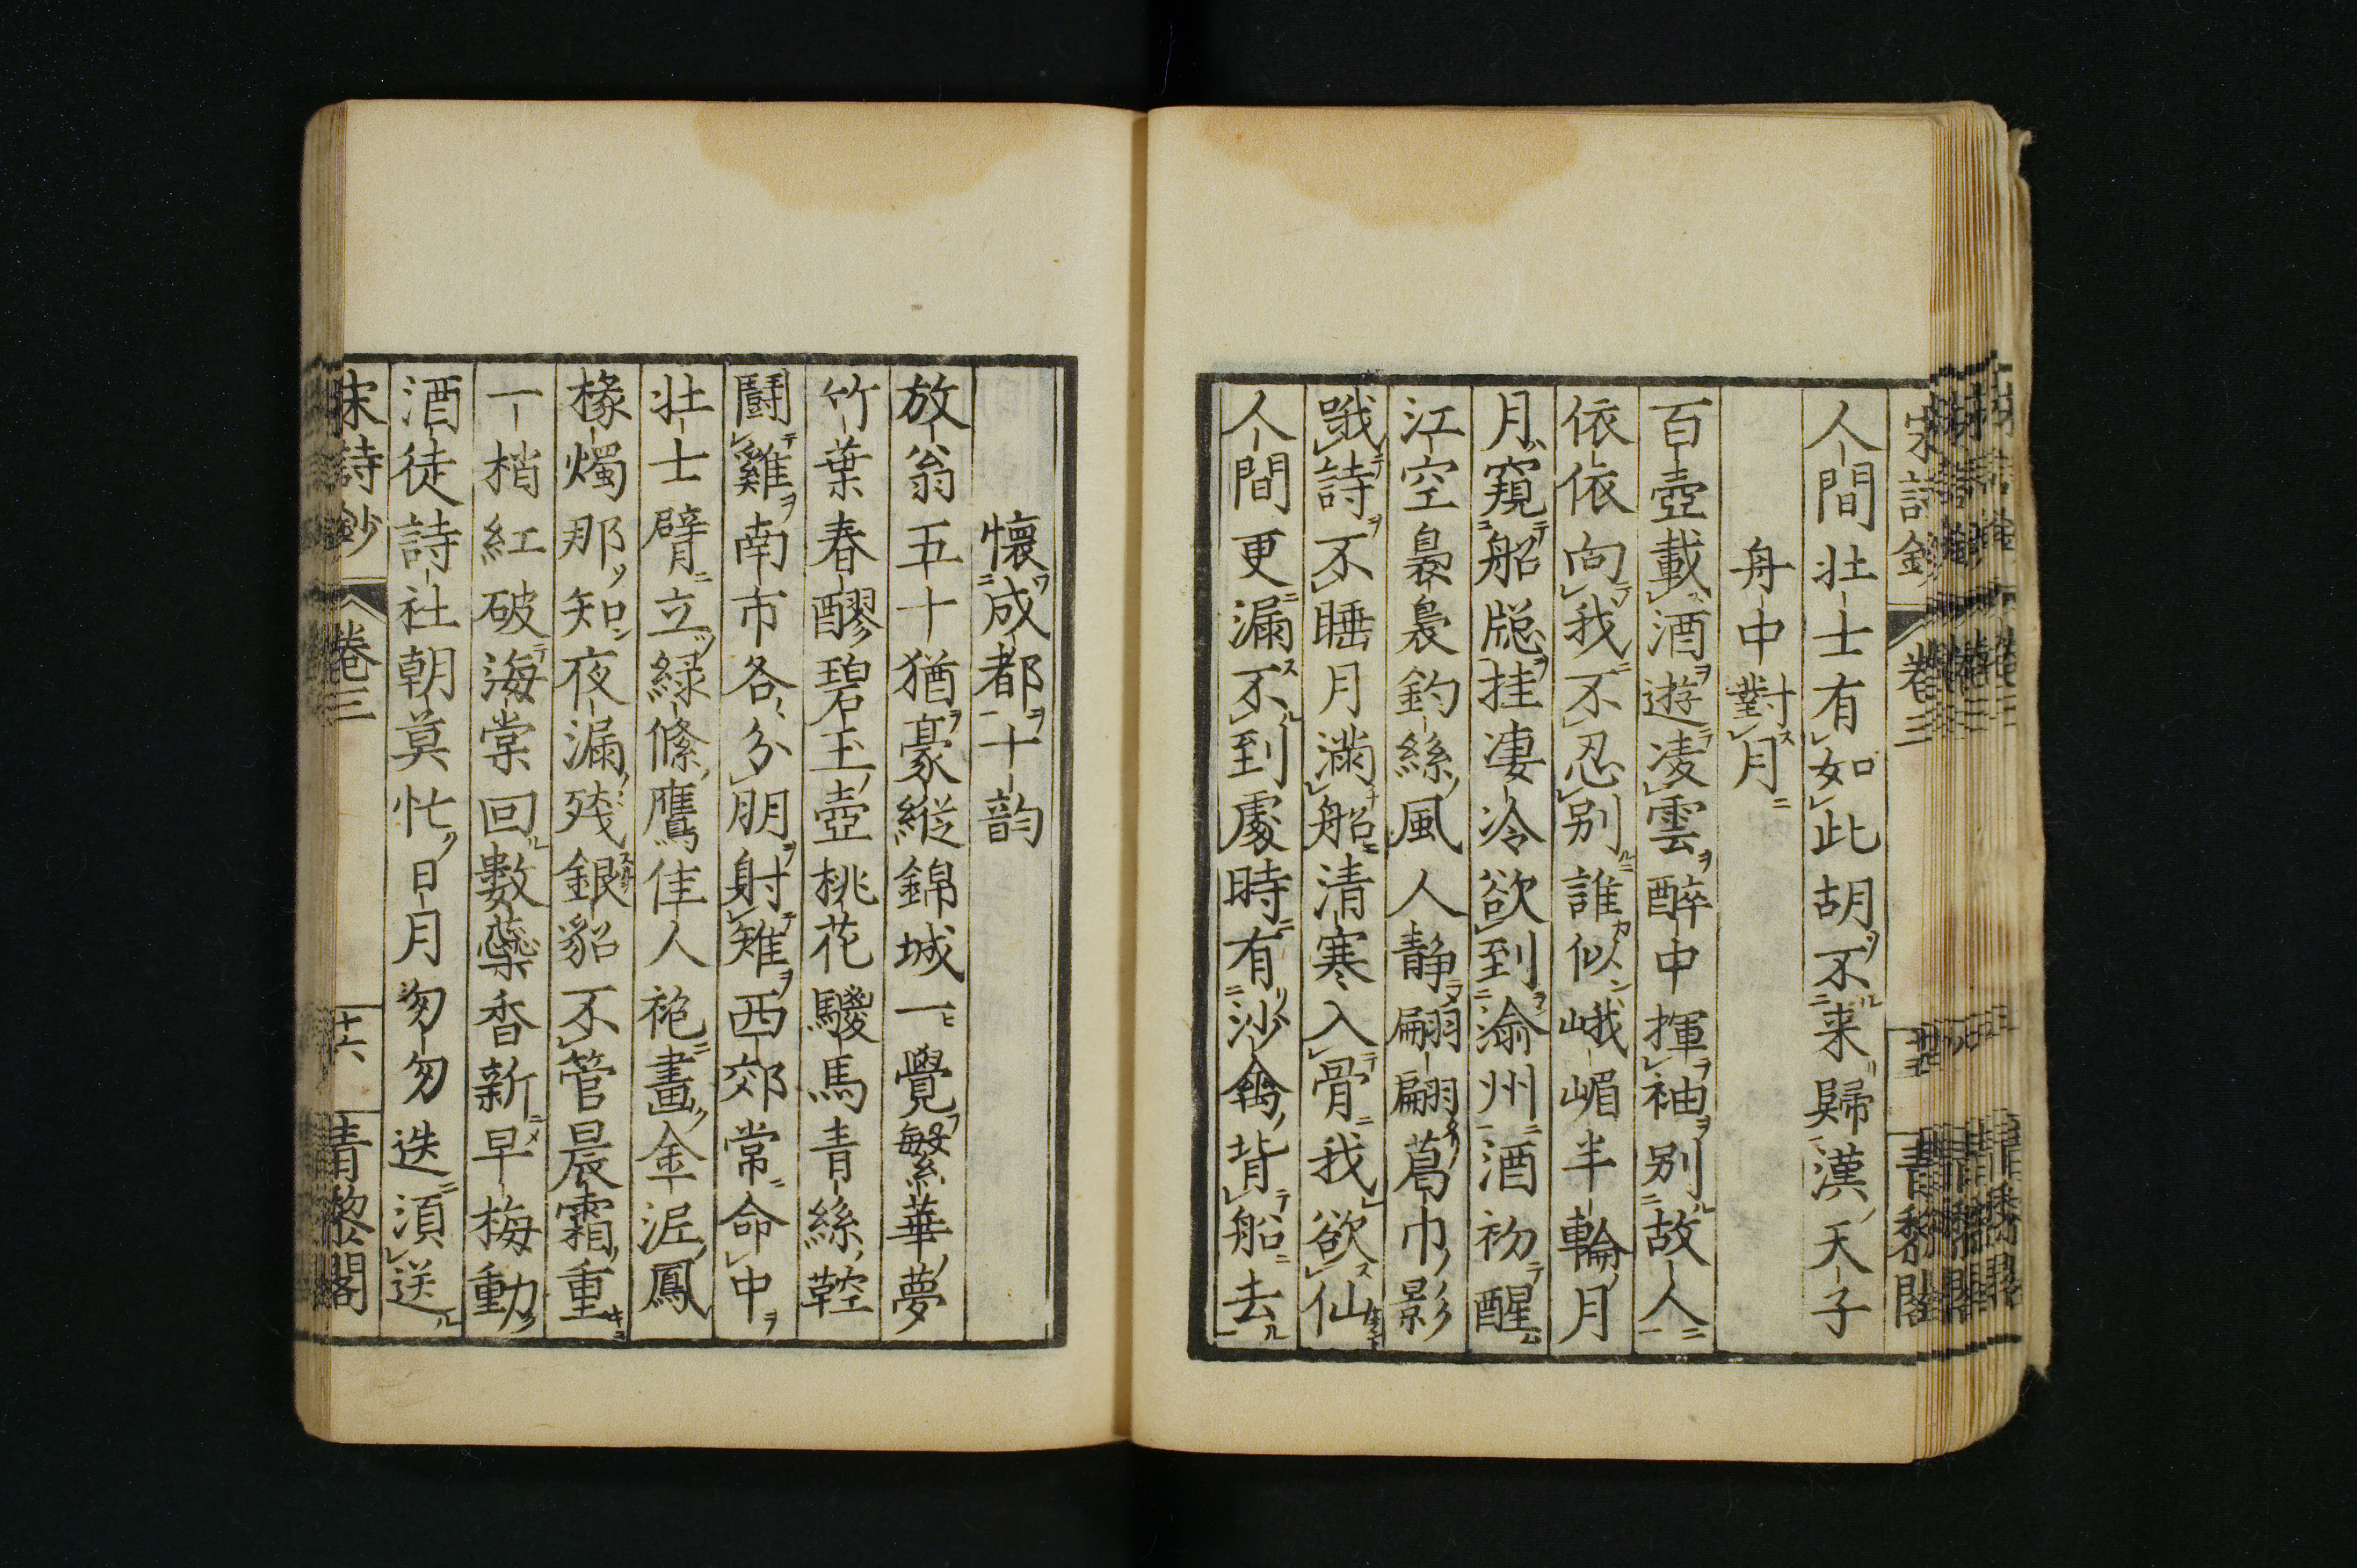 宋詩鈔 卷三 青黎閣
人間壯士有如此胡不来歸漢天子
舟中對月
百壺載酒遊凌雲醉中揮袖別故人
依依向我不忍別誰似峨嵋半輪月
月窺船牎挂凄冷欲到渝州酒初醒
江空裊裊釣絲風人静翩翩葛巾影
哦詩不睡月滿船清寒入骨我欲仙
人間更漏不到處時有沙禽背船去
懷成都十韵
放翁五十猶豪縦錦城一覺繁華夢
竹葉春醪碧玉壺桃花驄馬青絲鞚
鬪雞南市各分朋射雉西郊常命中
壯士臂立緑絛鷹佳人袍畫金泥鳳
椽燭那知夜漏残銀貂不管晨霜重
一梢紅破海棠回數蘂香新早梅動
酒徒詩社朝莫忙日月匆匆迭湏送
宋詩鈔 卷三 十六 青黎閣